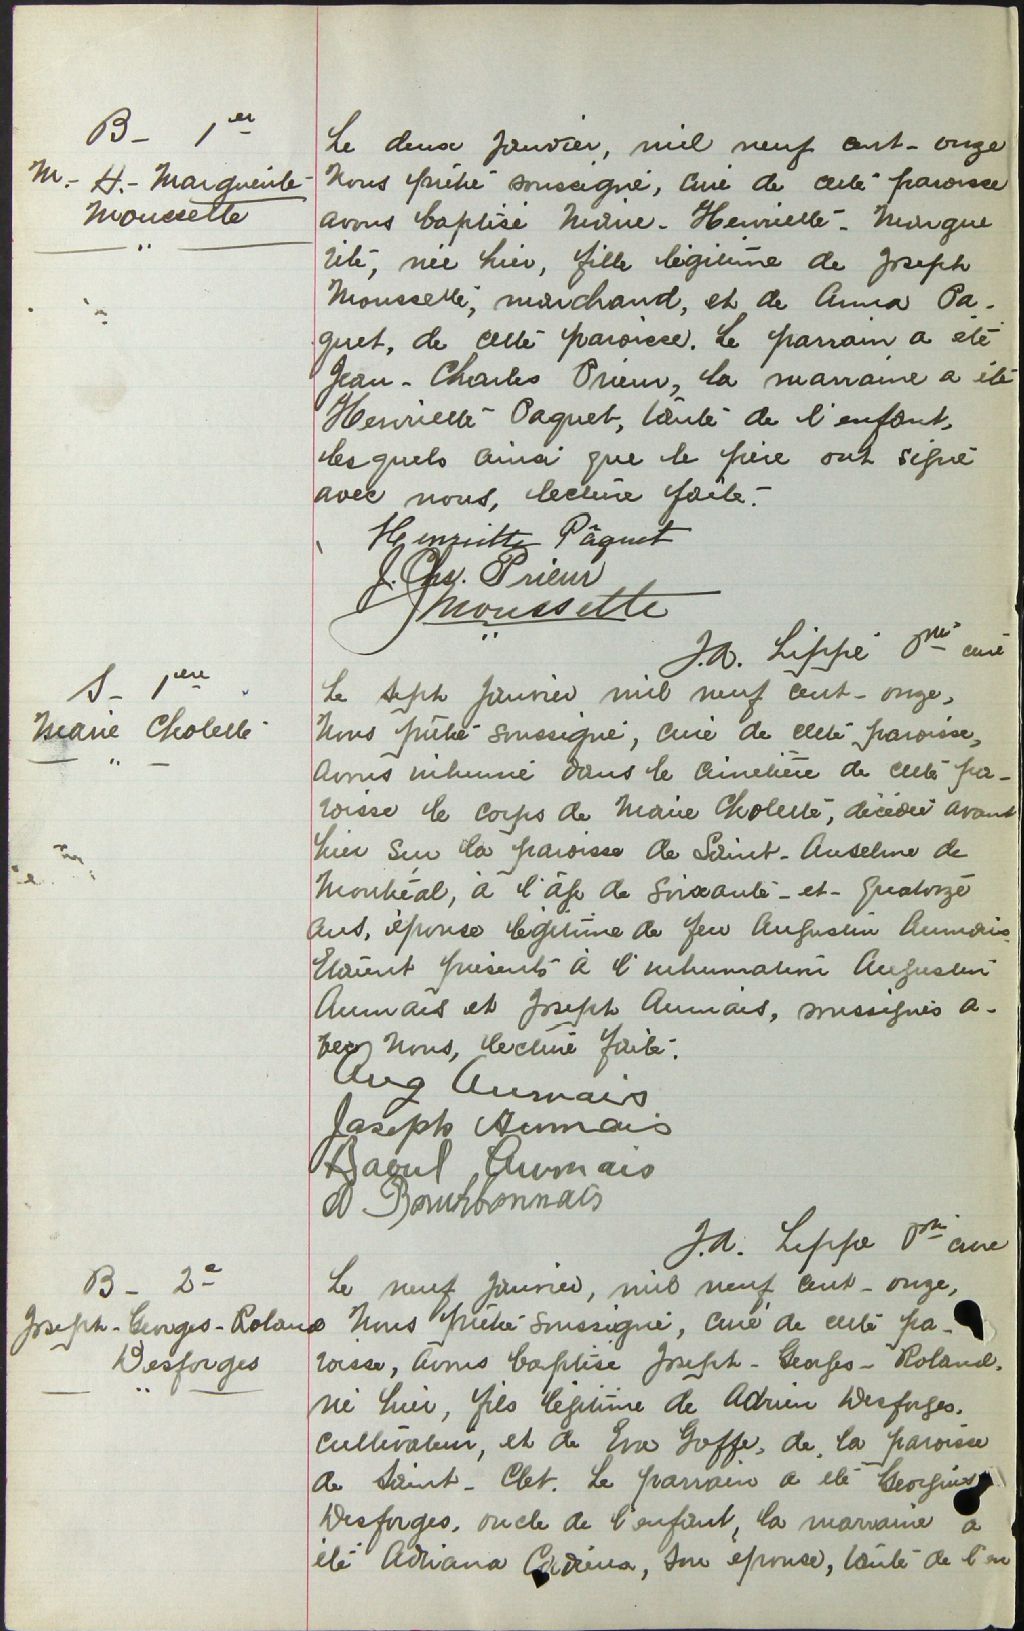 B - 1er
M.- H.- Marguerite
Moussette
Le deux janvier, mil neuf cent-onze
Nous prêtre soussigné, curé de cette paroisse
avons baptisé Marie-Henriette-Margue
rite, née hier, fille légitime de Joseph
Moussette, marchand, et de Anna Pa-
quet, de cette paroisse. Le parrain a été
Jean-Charles Prieur, la marraine a été
Henriette Paquet, tante de l'enfant,
lesquels ainsi que le père ont signé
avec nous, lecture faite.
Henriette Pâquet
J. Chs. Prieur
J Moussette
J.A. Lippé Ptre curé
S - 1ère
Marie Cholette
Le sept janvier mil neuf cent-onze,
Nous prêtre soussigné, curé de cette paroisse,
avons inhumé dans le cimetière de cette pa-
roisse le corps de Marie Cholette, décédée avant
hier sur la paroisse de Saint-Anselme de
Montréal, à l'âge de soixante-et-quatorze
ans, épouse légitime de feu Augustin Aumais.
Etaient présents à l'inhumation Augustin
Aumais et Joseph Aumais, soussignés a-
vec Nous, lecture faite.
Aug Aumais
Joseph Aumais
Raoul Aumais
D Bourbonnais
J.A. Lippé Ptre curé
B - 2e
Joseph-Georges-Roland
Desforges
Le neuf janvier, mil neuf cent-onze,
Nous prêtre soussigné, curé de cette pa-
roisse, avons baptisé Joseph-Georges-Roland,
né hier, fils légitime de Adrien Desforges,
cultivateur, et de Eva Goffe, de la paroisse
de Saint-Clet. Le parrain a été Georgius
Desforges, oncle de l'enfant, la marraine a
été Adriana Cadieux, son épouse, tante de l'en